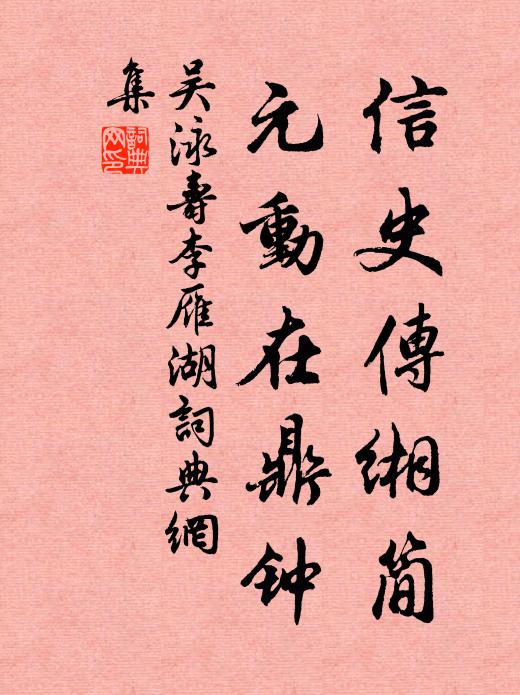 信史傳緗简
元動在鼎钟
吴泳壽李雁湖詞典網
集
詞典網印